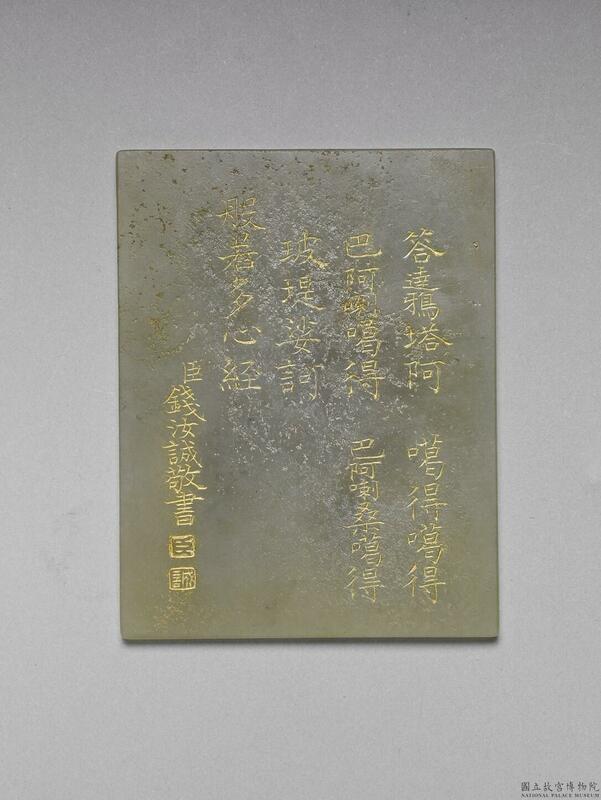 答達鴉塔阿 噶得噶得
巴阿喇噶得 巴阿喇桑噶得
玻堤娑訶
般若多心経
臣錢汝誠敬書
臣
誠
國立故宮博物院
NATIONAL PALACE MUSEUM